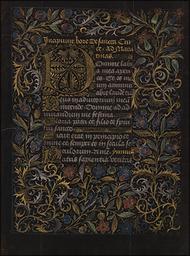 Incipiunt hore de sancta Cru
ce. Ad Matu
tinas.
Domine labi
a mea aperi
es. Et os me
um
abit laudē tu
eus in adiutorium meū
intende. Domine ad ad
iuvandum me festina.
loria patri et filio et spiri
tui sancto.
icut erat in principio et
nunc et semper et in secula se
culorum. amē.
atris sapientia veritas